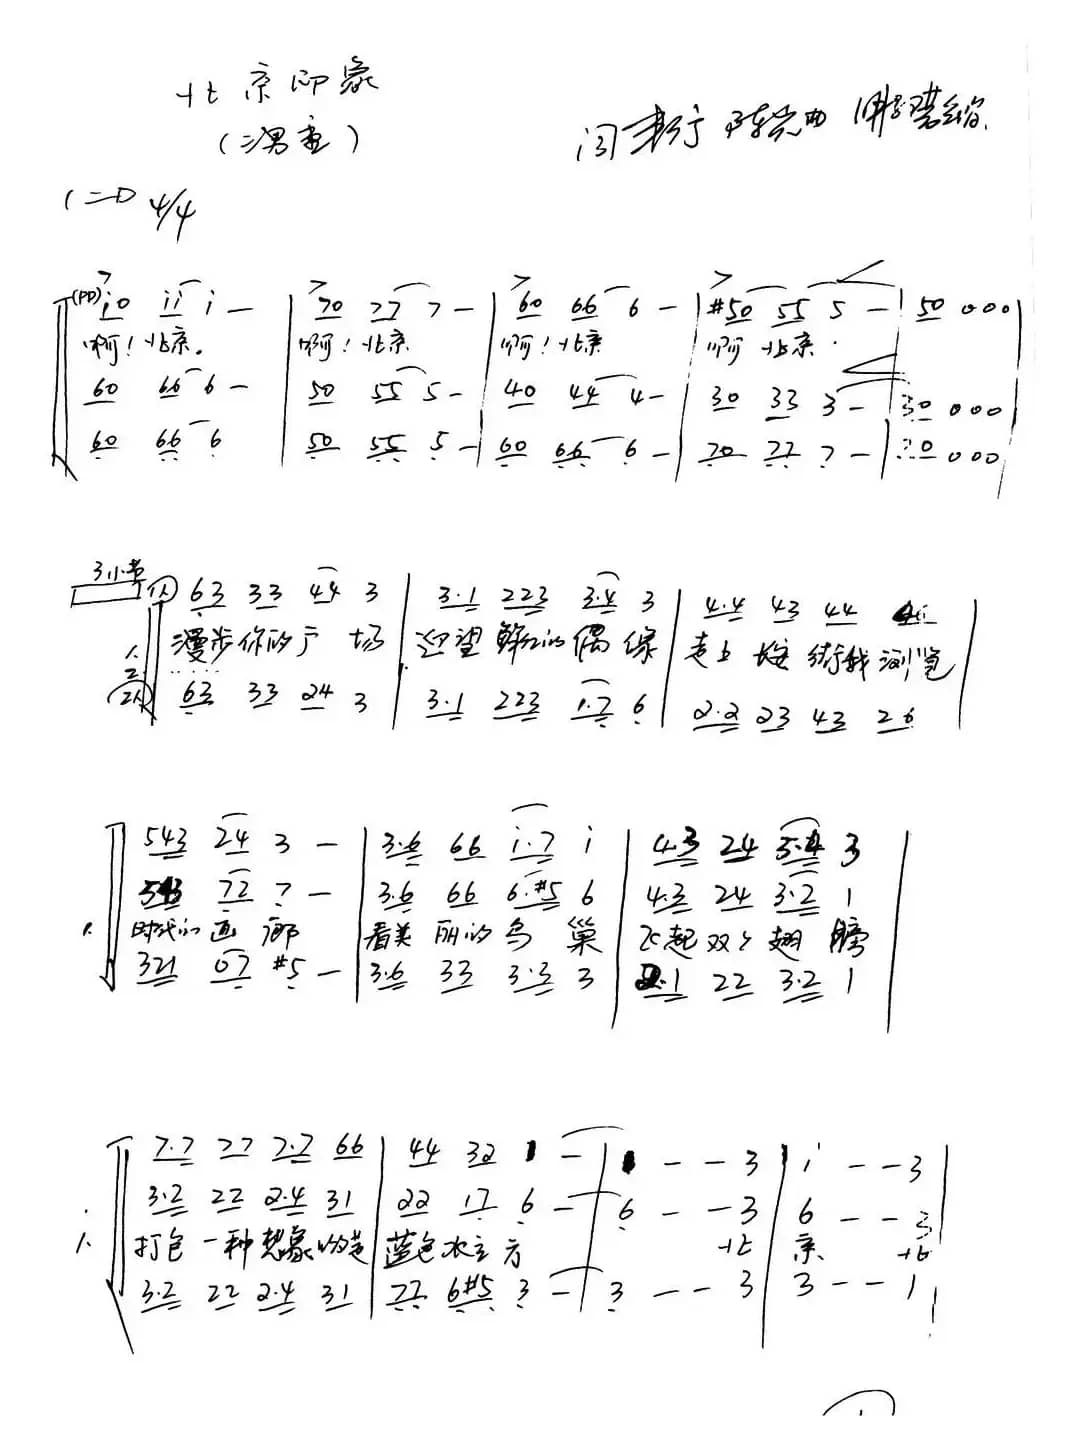 北京印象
(男重)
闫 词 陈光曲 缩
1=D 4/4
(PP) i0 ii i — | 70 77 7 — | 60 66 6 — | #50 55 5 — | 50 000
啊!北京。 啊!北京 啊!北京 啊 北京.
60 66 6 — | 50 55 5 — | 40 44 4 — | 30 33 3 — | 30 000
60 66 6 | 50 55 5 — | 60 66 6 — | 70 77 7 — | 70 000
3小节 (1人) 63 33 44 3 | 3·1 223 3·4 3 | 4·4 43 44
漫步你的广场 迎望鲜红的偶像 走上长安街我浏览
(2人) 63 33 24 3 | 3·1 223 1·7 6 | 2·2 23 43 26
543 24 3 — | 3·6 66 i·7 i | 4·3 24 3·4 3
543 72 7 — | 3·6 66 6·#5 6 | 4·3 24 3·2 1
时代的画廊 看美丽的鸟巢 飞起双飞翅膀
321 07 #5 — | 3·6 33 3·3 3 | 2·1 22 3·2 1
7·7 77 7·7 66 | 44 32 1 — | 1 — — 3 | i — — 3
3·2 22 2·4 31 | 22 17 6 — | 6 — — 3 | 6 — — 3
打包一种想象的是 蓝色水立方 北 京 北
3·2 22 2·4 31 | 77 6#5 3 — | 3 — — 3 | 3 — — 1